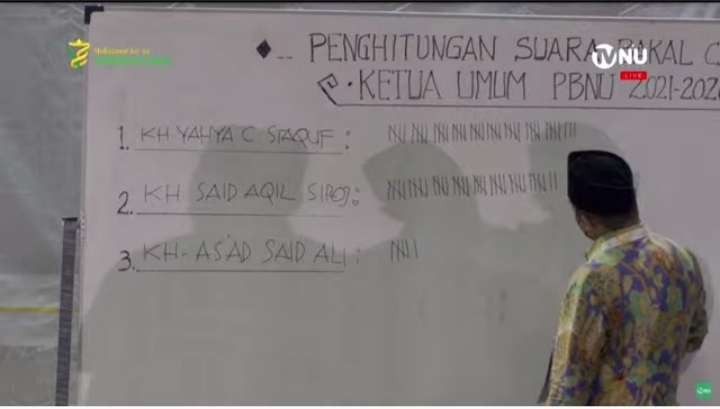 PENGHITUNGAN SUARA BAKAL C
KETUA UMUM PBNU 2021-202
TVNU
LIVE
1. KH YAHYA C STAQUF :
2. KH SAID AQIL SIROJ :
3. KH. AS'AD SAID ALI :